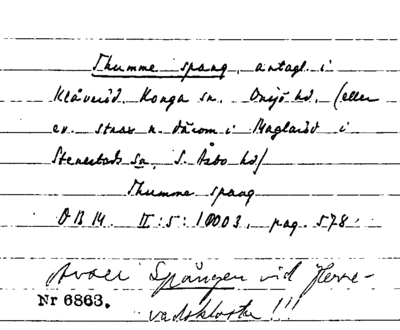 Thumme spang, antagl. i
Klåveröd, Konga sn. Onsjö hd. (eller
ev. strax n. därom i Maglaröd i
Stenestads sn, S. Åsbo hd)
Thumme spang
ÖB 14. II:5:10003, pag. 578.
Avser Spången vid Herre-
Nr 6863.
vadskloster !!!